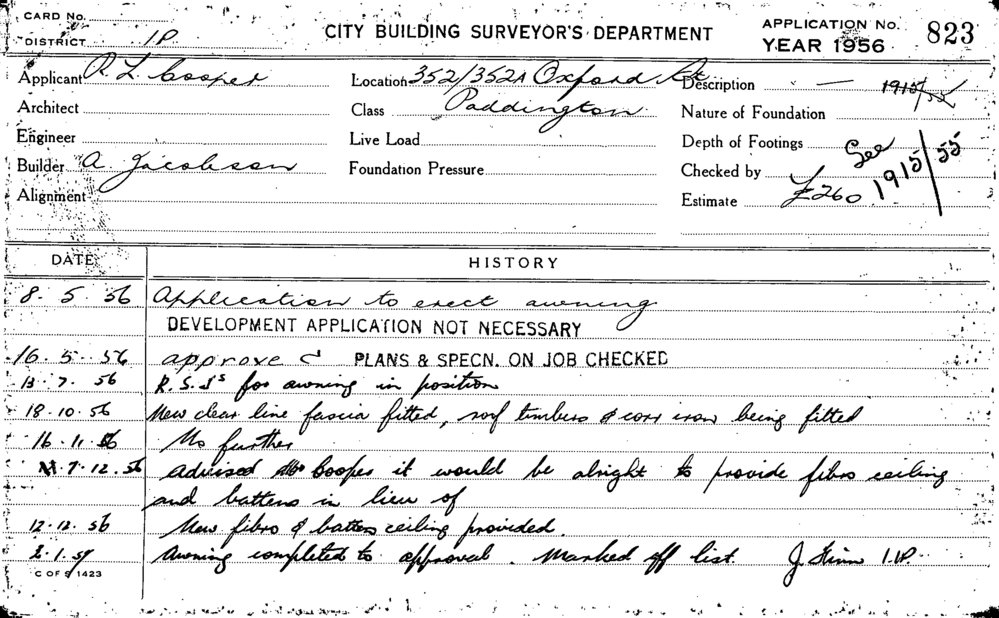 CARD No.
DISTRICT 1P.
CITY BUILDING SURVEYOR'S DEPARTMENT
APPLICATION No. 823
YEAR 1956
Applicant R L Cooper
Location 352/352A Oxford St
Description — 1915/55
Architect
Class Paddington
Nature of Foundation
Engineer
Live Load
Depth of Footings
Builder A. Jacobson
Foundation Pressure
Checked by See 1915/55
Alignment
Estimate £260
DATE HISTORY
8. 5. 56 Application to erect awning
DEVELOPMENT APPLICATION NOT NECESSARY
16. 5. 56 approved PLANS & SPECN. ON JOB CHECKED
13. 7. 56 R.S.J's for awning in position
18.10.56 New clear line fascia fitted, roof timbers & corr iron being fitted
16.11.56 No further
7.12.56 Advised Cooper it would be alright to provide fibro ceiling
and battens in lieu of
12.12.56 New fibro & batten ceiling provided.
2.1.57 Awning completed to approval. Marked off list. J 1.P.
C OF S 1423